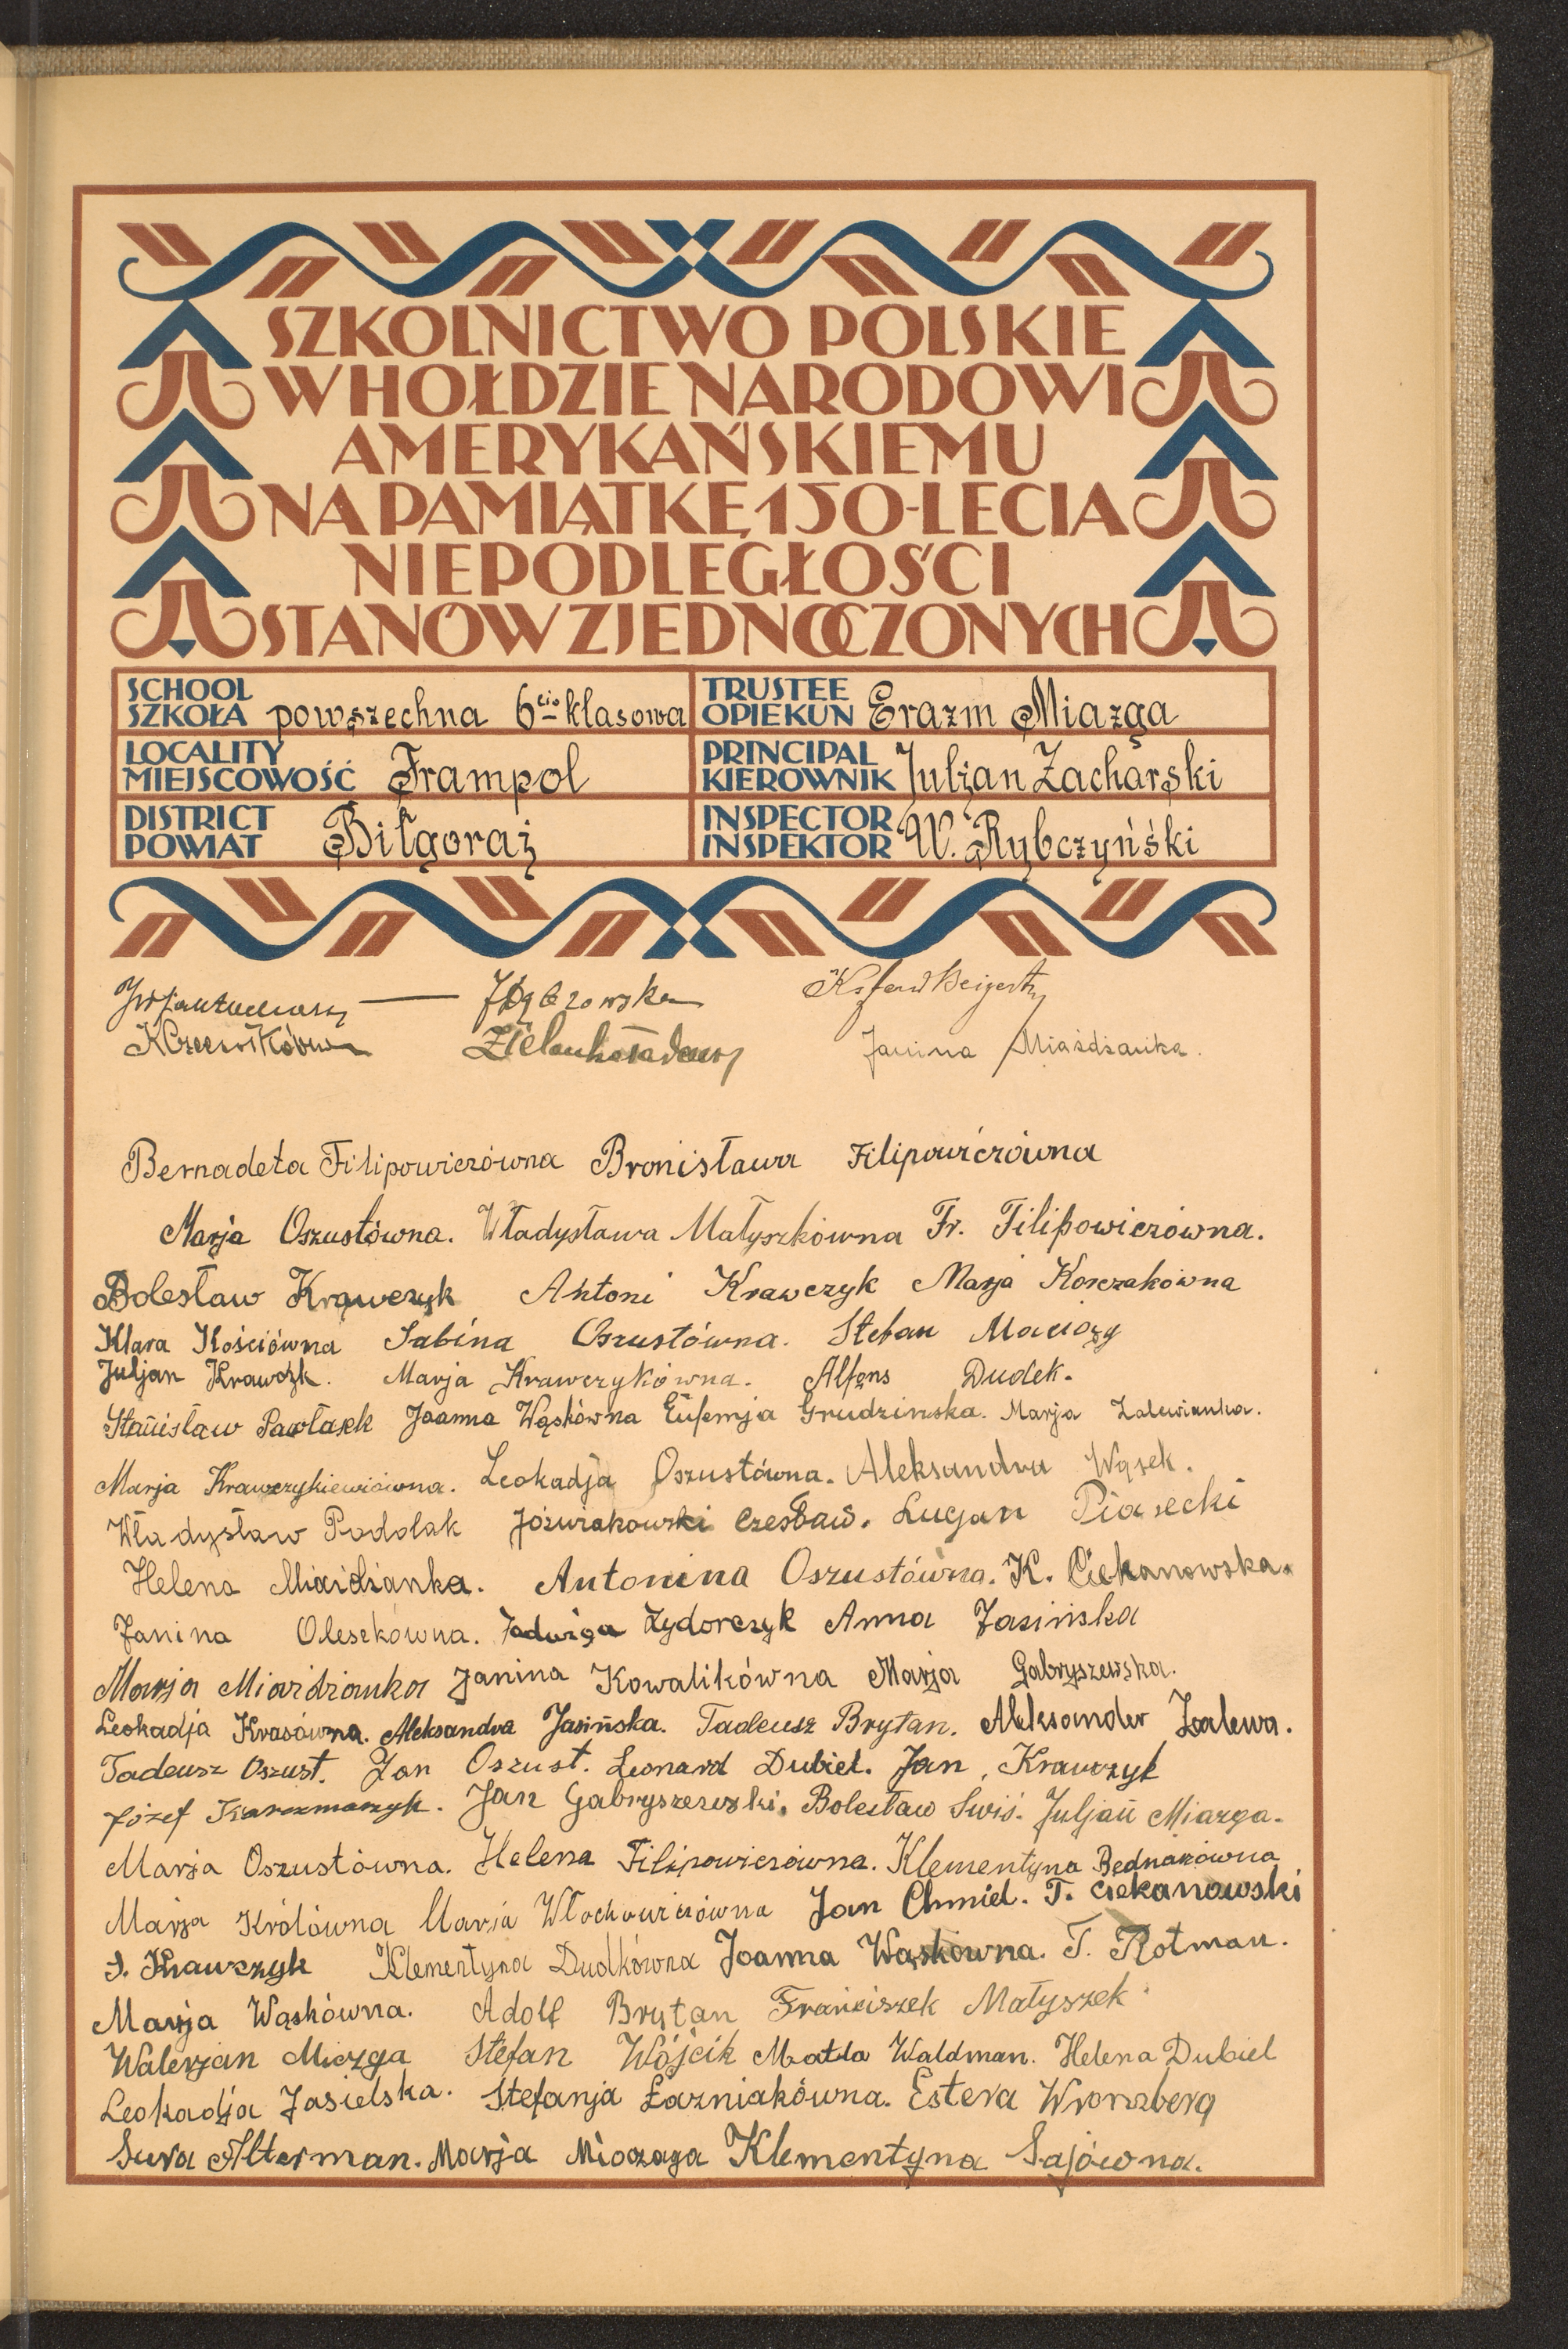 SZKOLNICTWO POLSKIE
W HOŁDZIE NARODOWI
AMERYKAŃSKIEMU
NA PAMIĄTKĘ 150-LECIA
NIEPODLEGŁOŚCI
STANÓW ZJEDNOCZONYCH
SCHOOL SZKOŁA powszechna 6cio klasowa TRUSTEE OPIEKUN Erazm Miazga
LOCALITY MIEJSCOWOŚĆ Frampol PRINCIPAL KIEROWNIK Juljan Zacharski
DISTRICT POWIAT Biłgoraj INSPECTOR INSPEKTOR W. Rybczyński
Janina Miaźdżanka.
Bernadeta Filipowiczówna Bronisława Filipowiczówna
Marja Oszustówna. Władysława Małyszkówna Fr. Filipowiczówna.
Bolesław Krawczyk Antoni Krawczyk Marja Korczakówna
Klara Kościówna Sabina Oszustówna. Stefan Maciąg
Juljan Krawczk. Marja Krawczykówna. Alfons Dudek.
Stanisław Pawlasek Joanna Wąskówna Eufemja Grudzinska. Marja Zalewianka.
Marja Krawczykiewiczówna. Leokadja Oszustówna. Aleksandra Wąsek.
Władysław Podolak Jóźwiakowski Czesław. Lucjan Piasecki
Helena Miaidzianka. Antonina Oszustówna. K. Ciekanowska.
Janina Oleszkówna. Jadwiga Zydorczyk Anna Jasińska
Marja Miazdzianka Janina Kowalikówna Marja Gabryszewska.
Leokadja Krasówna. Aleksandra Jasińska. Tadeusz Brytan. Aleksander Zalewa.
Tadeusz Oszust. Jan Oszust. Leonard Dubiel. Jan Krawczyk
Józef Karczmarzyk. Jan Gabryszewski. Bolesław Swiś. Juljan Miazga.
Marja Oszustówna. Helena Filipowiczówna. Klementyna Bednarzówna
Marja Królówna Marja Włochowiczówna Jan Chmiel. T. Ciekanowski
S. Krawczyk Klementyna Dudkówna Joanna Wąskówna. T. Rotman.
Marja Wąskówna. Adolf Brytan Franciszek Małyszek
Walerjan Miazga Stefan Wójcik Matla Waldman. Helena Dubiel
Leokadja Jasielska. Stefanja Łazniakówna. Estera
Sura Alterman. Marja Miazaga Klementyna Sajówna.